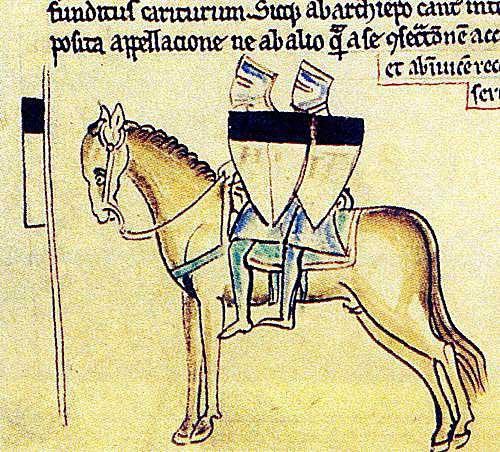 funditus cariturum. Sicq; ab archiepo cant int
posita appellacione ne ab alio q̃ a se
et abīuicē rec
ser